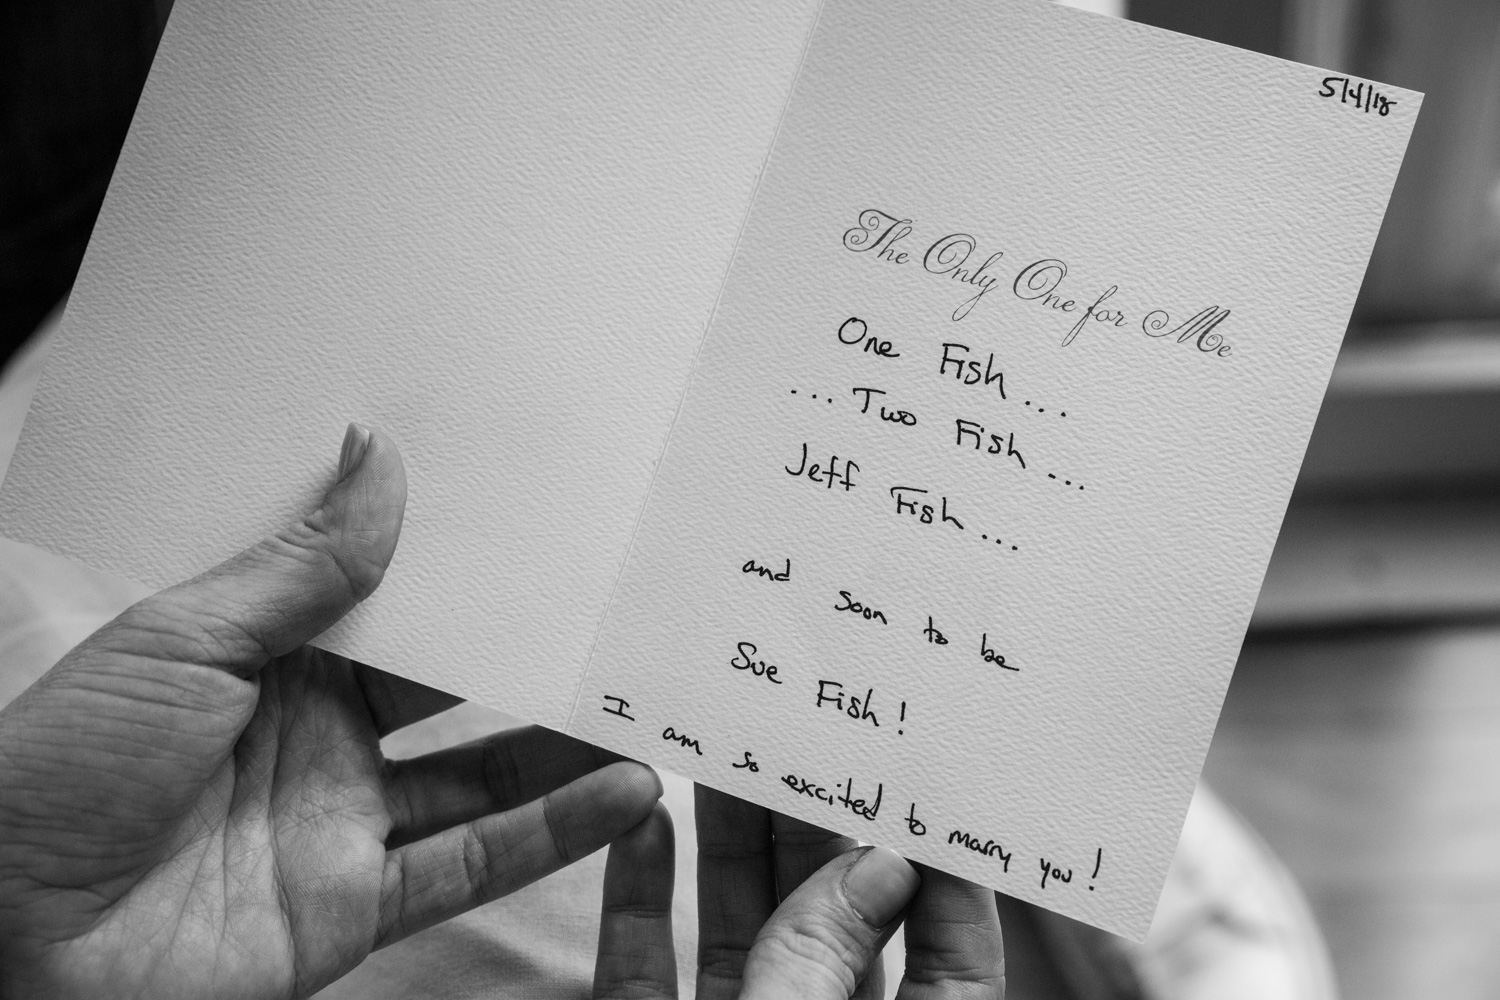 5/4/18
The Only One for Me
One Fish...
...Two Fish...
Jeff Fish...
and soon to be
Sue Fish!
I am so excited to marry you!